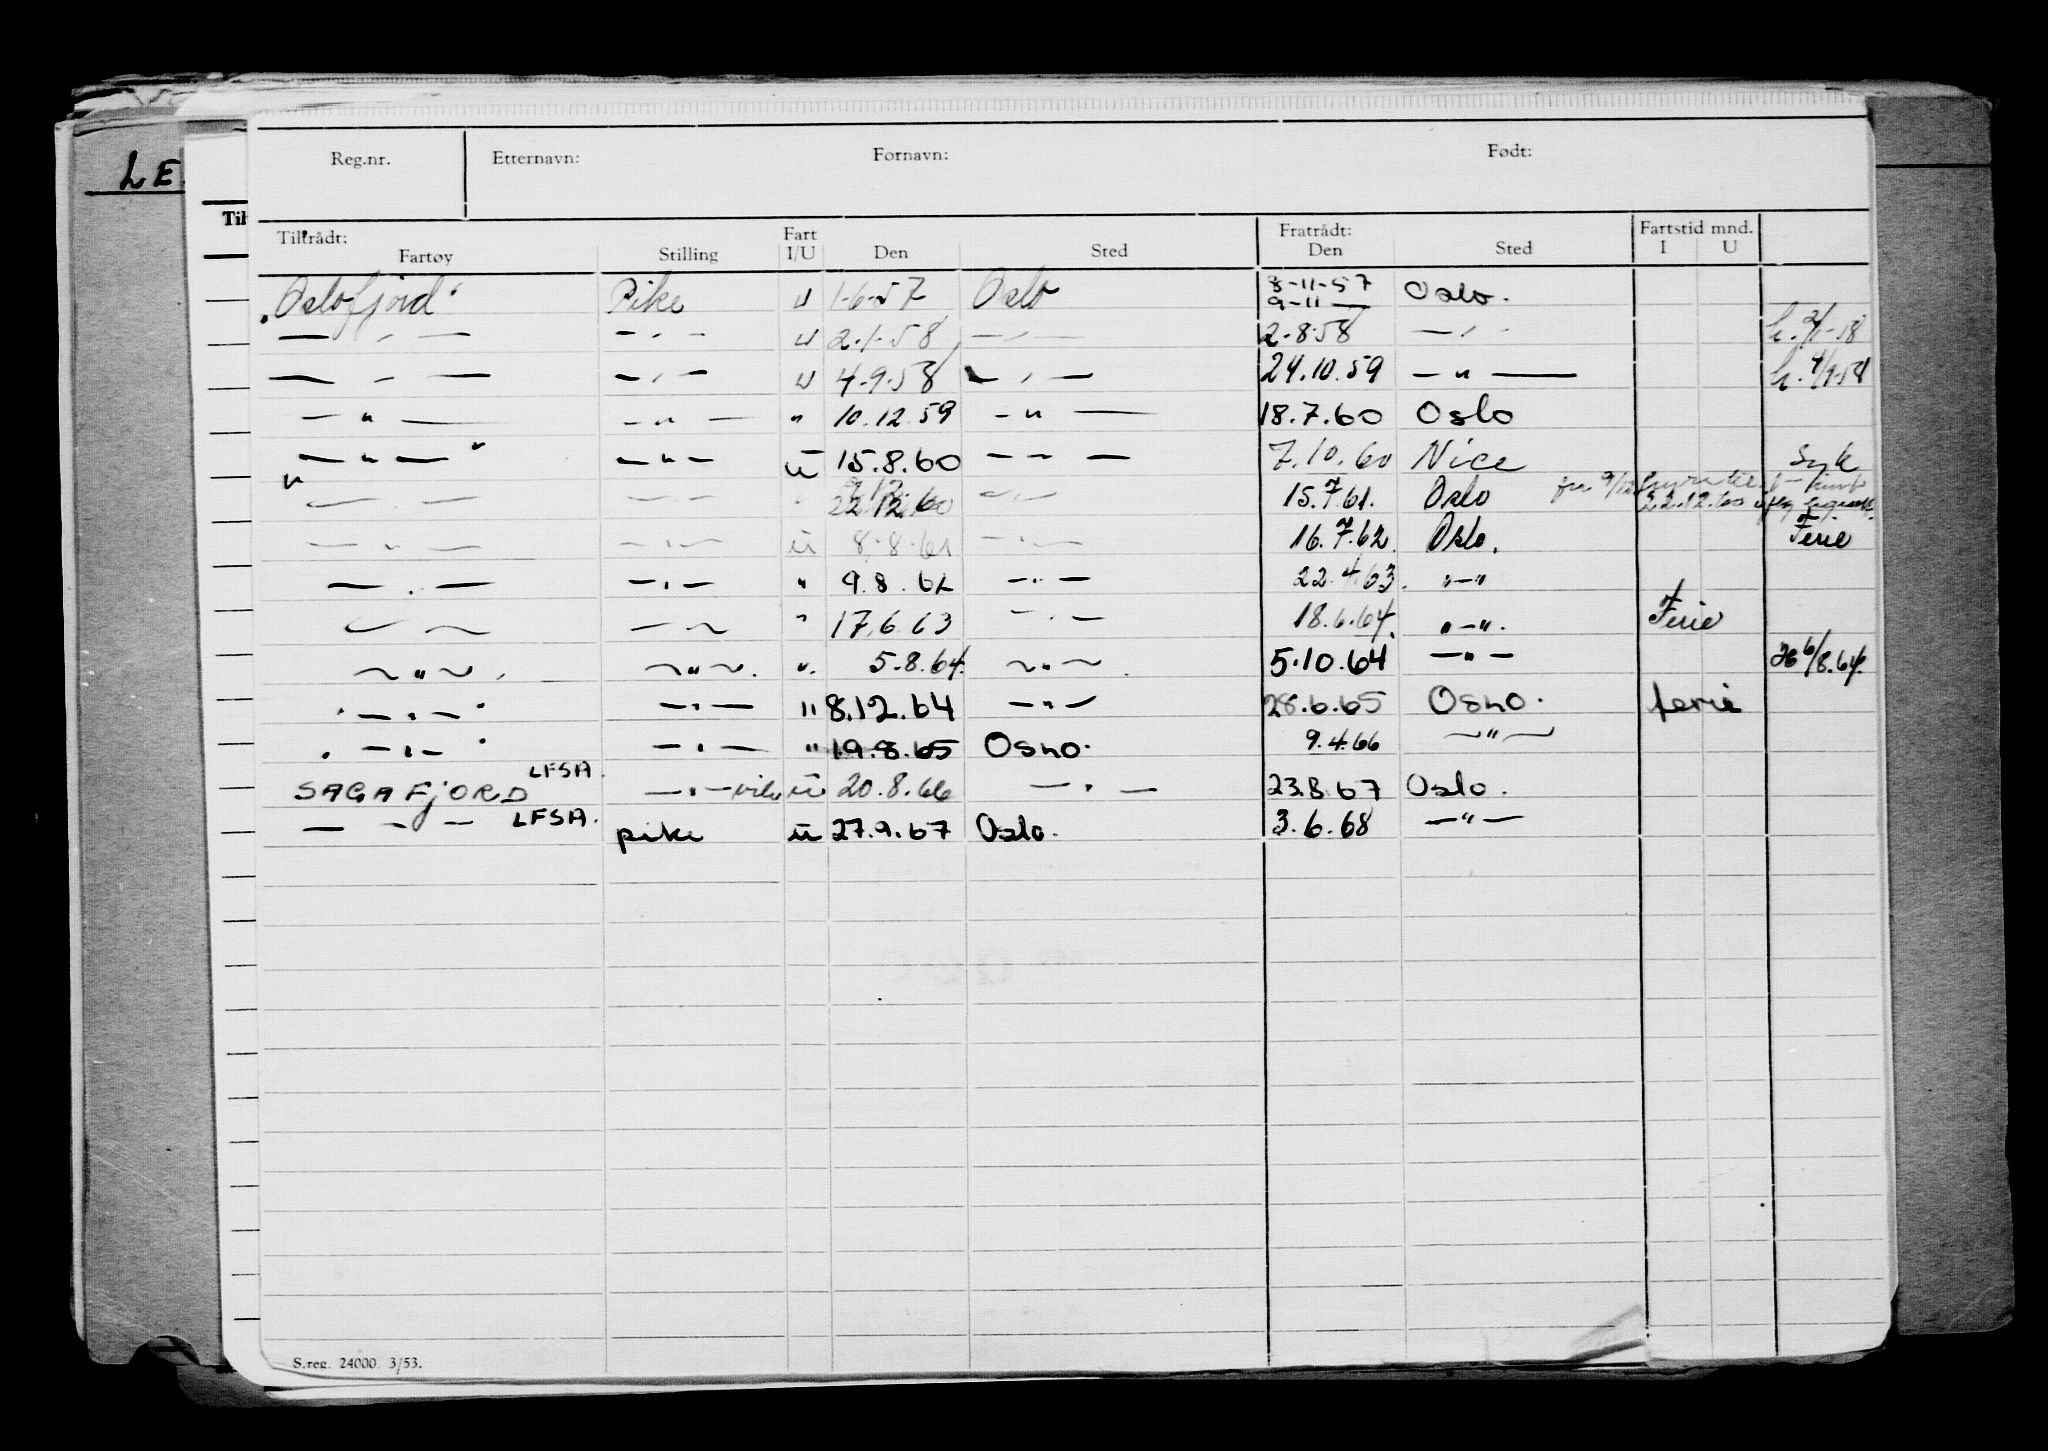 LE
Reg.nr. Etternavn: Fornavn: Født:
Til
Tiltrådt: Fart Fratrådt: Fartstid mnd.
Fartøy Stilling I/U Den Sted Den Sted I U
"Oslofjord" Pike U 1-6-57 Oslo 8-11-57 9-11 — Oslo.
— " — — " — U 2-1-58 — " — 2-8-58 — " — h. 2/1-58
— " — — " — U 4-9-58 — " — 24.10.59 — " — h. 4/9-58
— " — — " — " 10.12.59 — " — 18.7.60 Oslo
" — " — " — " — ū 15.8.60 — " — 7.10.60 Nice Syk
— " — — " — " 22.12.60 — " — 15.7.61. Oslo 9/12 22.12.60
— " — — " — ū 8.8.61 — " — 16.7.62. Oslo. Ferie
— " — — " — " 9.8.62 — " — 22.4.63. "—"
— " — — " — " 17.6.63 — " — 18.6.64. "—". Ferie
— " — — " — ". 5.8.64. — " — 5.10.64 — " — 6/8.64.
" — " — " — " — " 8.12.64 — " — 28.6.65 Oslo. ferie
" — " — " — " — " 19.8.65 Oslo. 9.4.66 — " —
SAGAFJORD LFSA. — " — ū 20.8.66 — " — 23.8.67 Oslo.
— " — LFSA. pike ū 27.9.67 Oslo. 3.6.68 — " —
S.reg. 24000. 3/53.